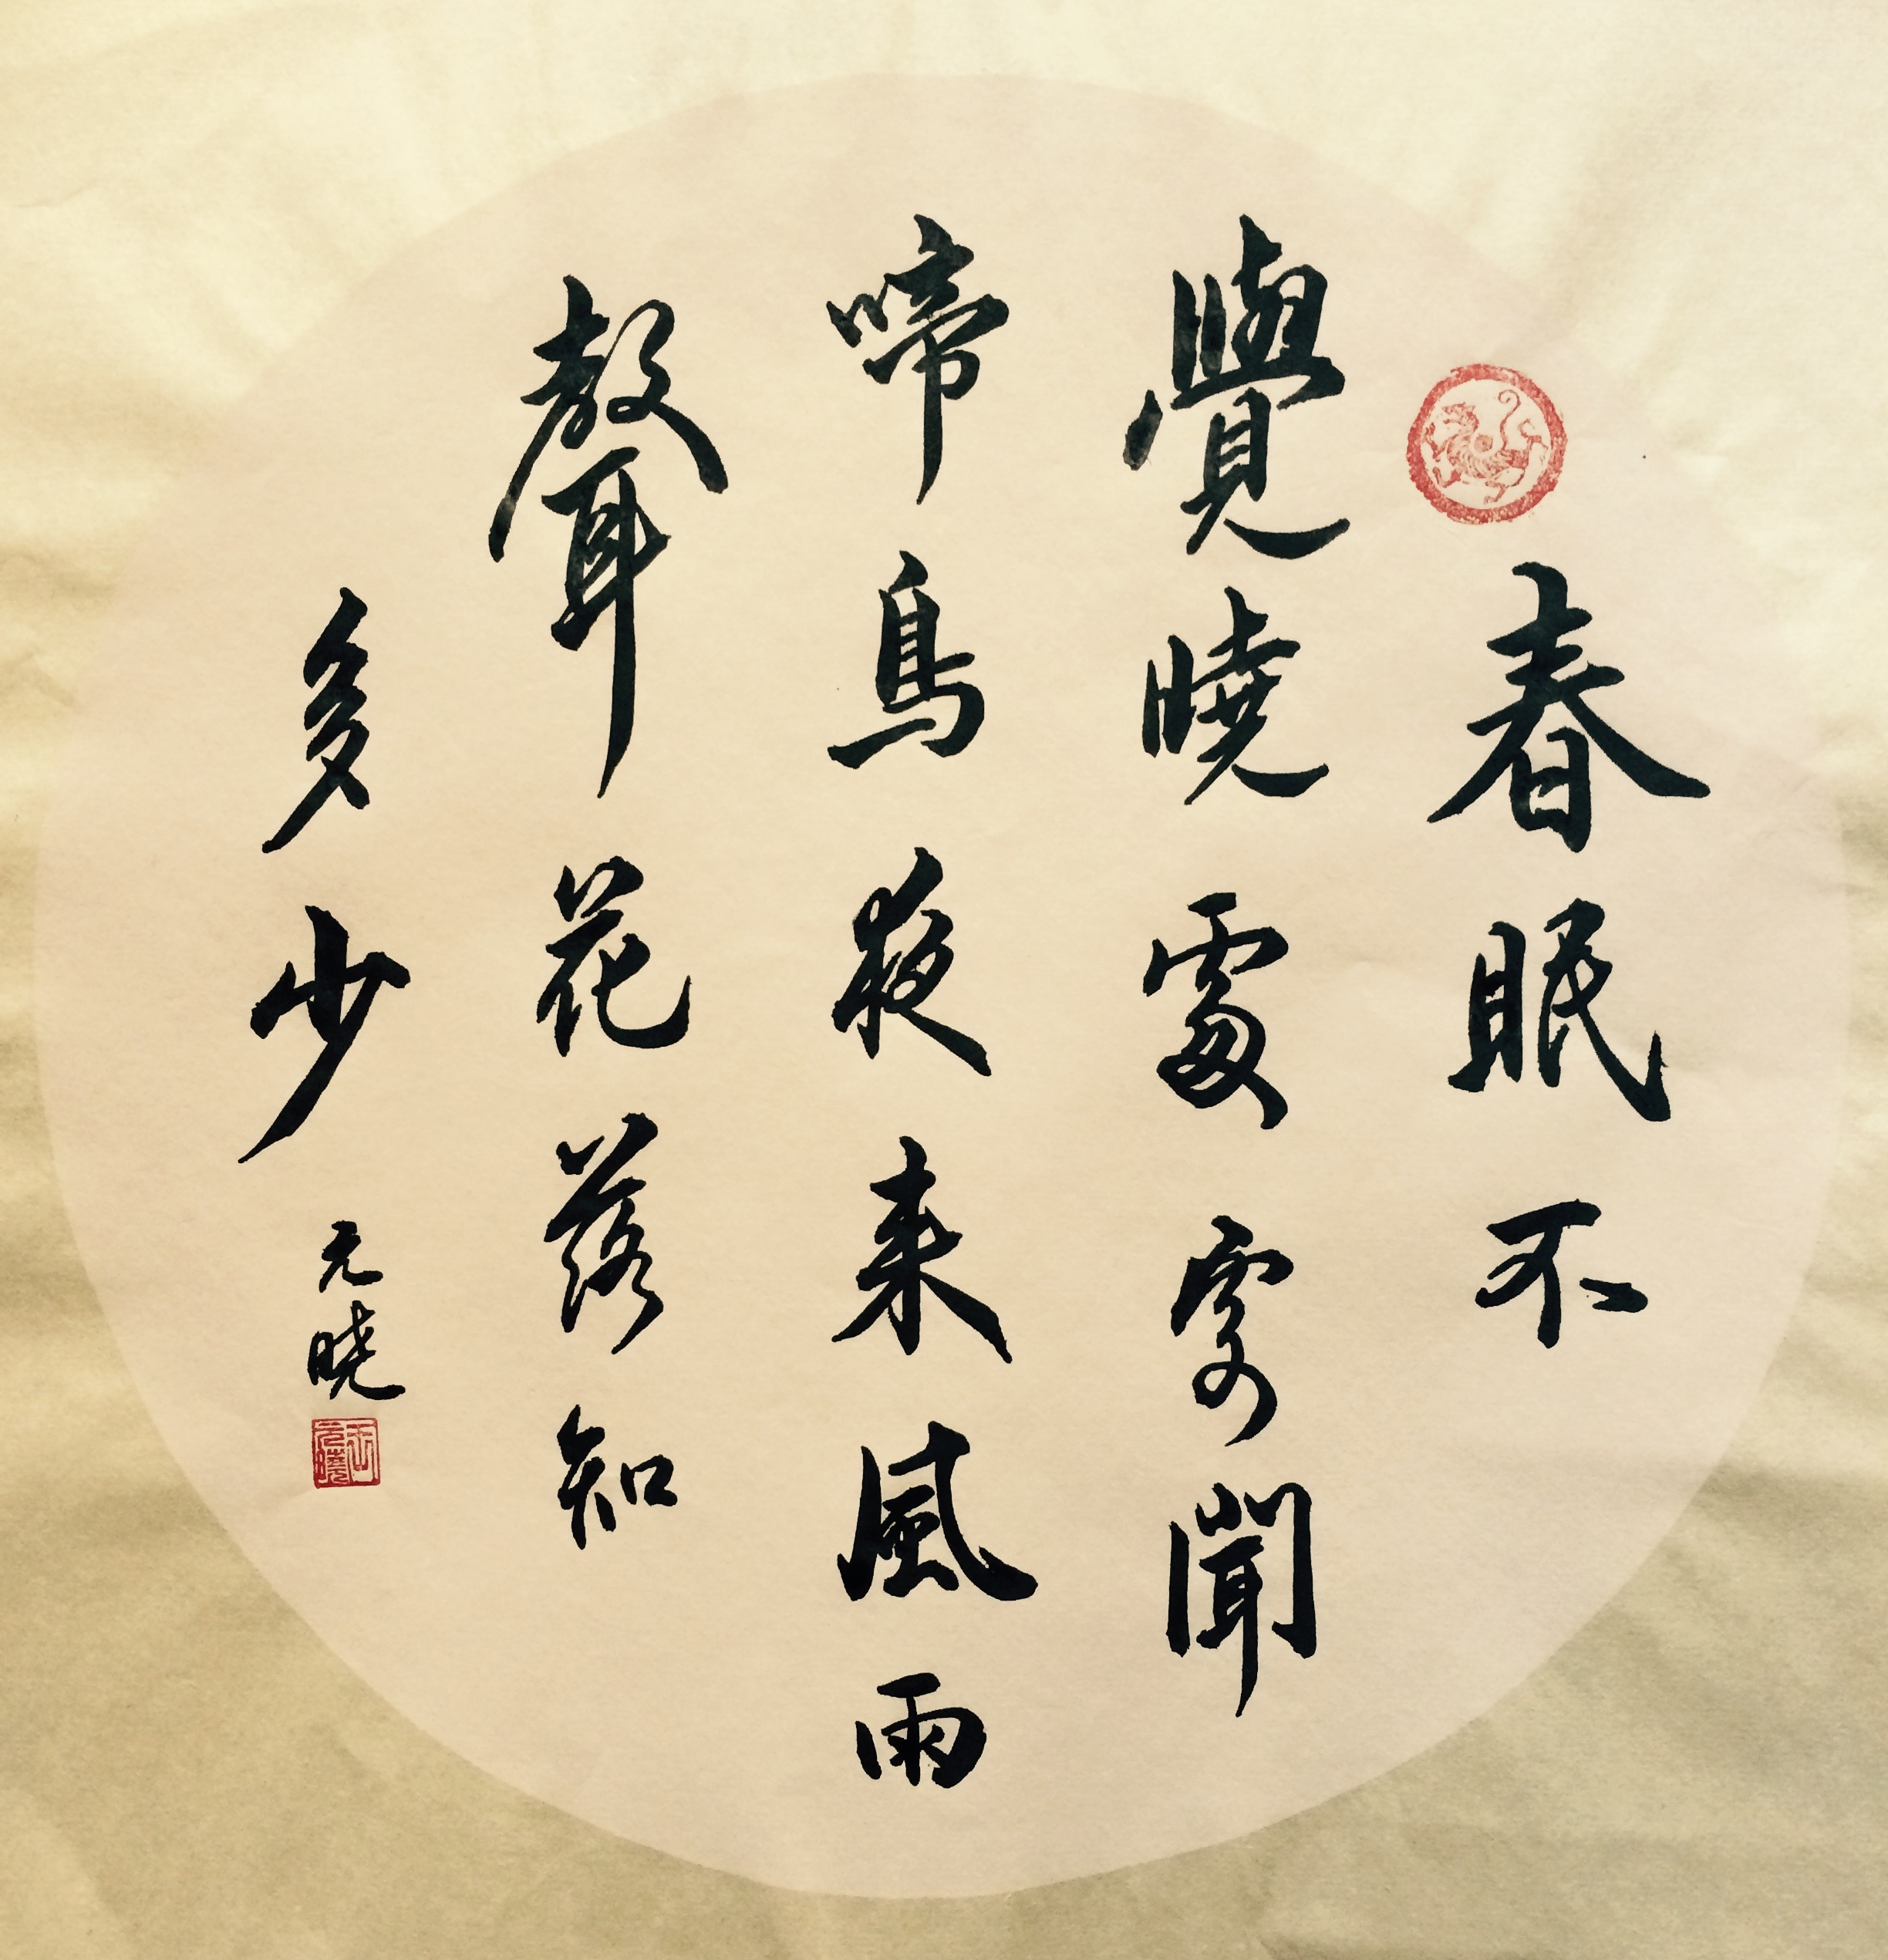 春眠不
覺曉處處聞
啼鳥夜来風雨
聲花落知
多少
元晓